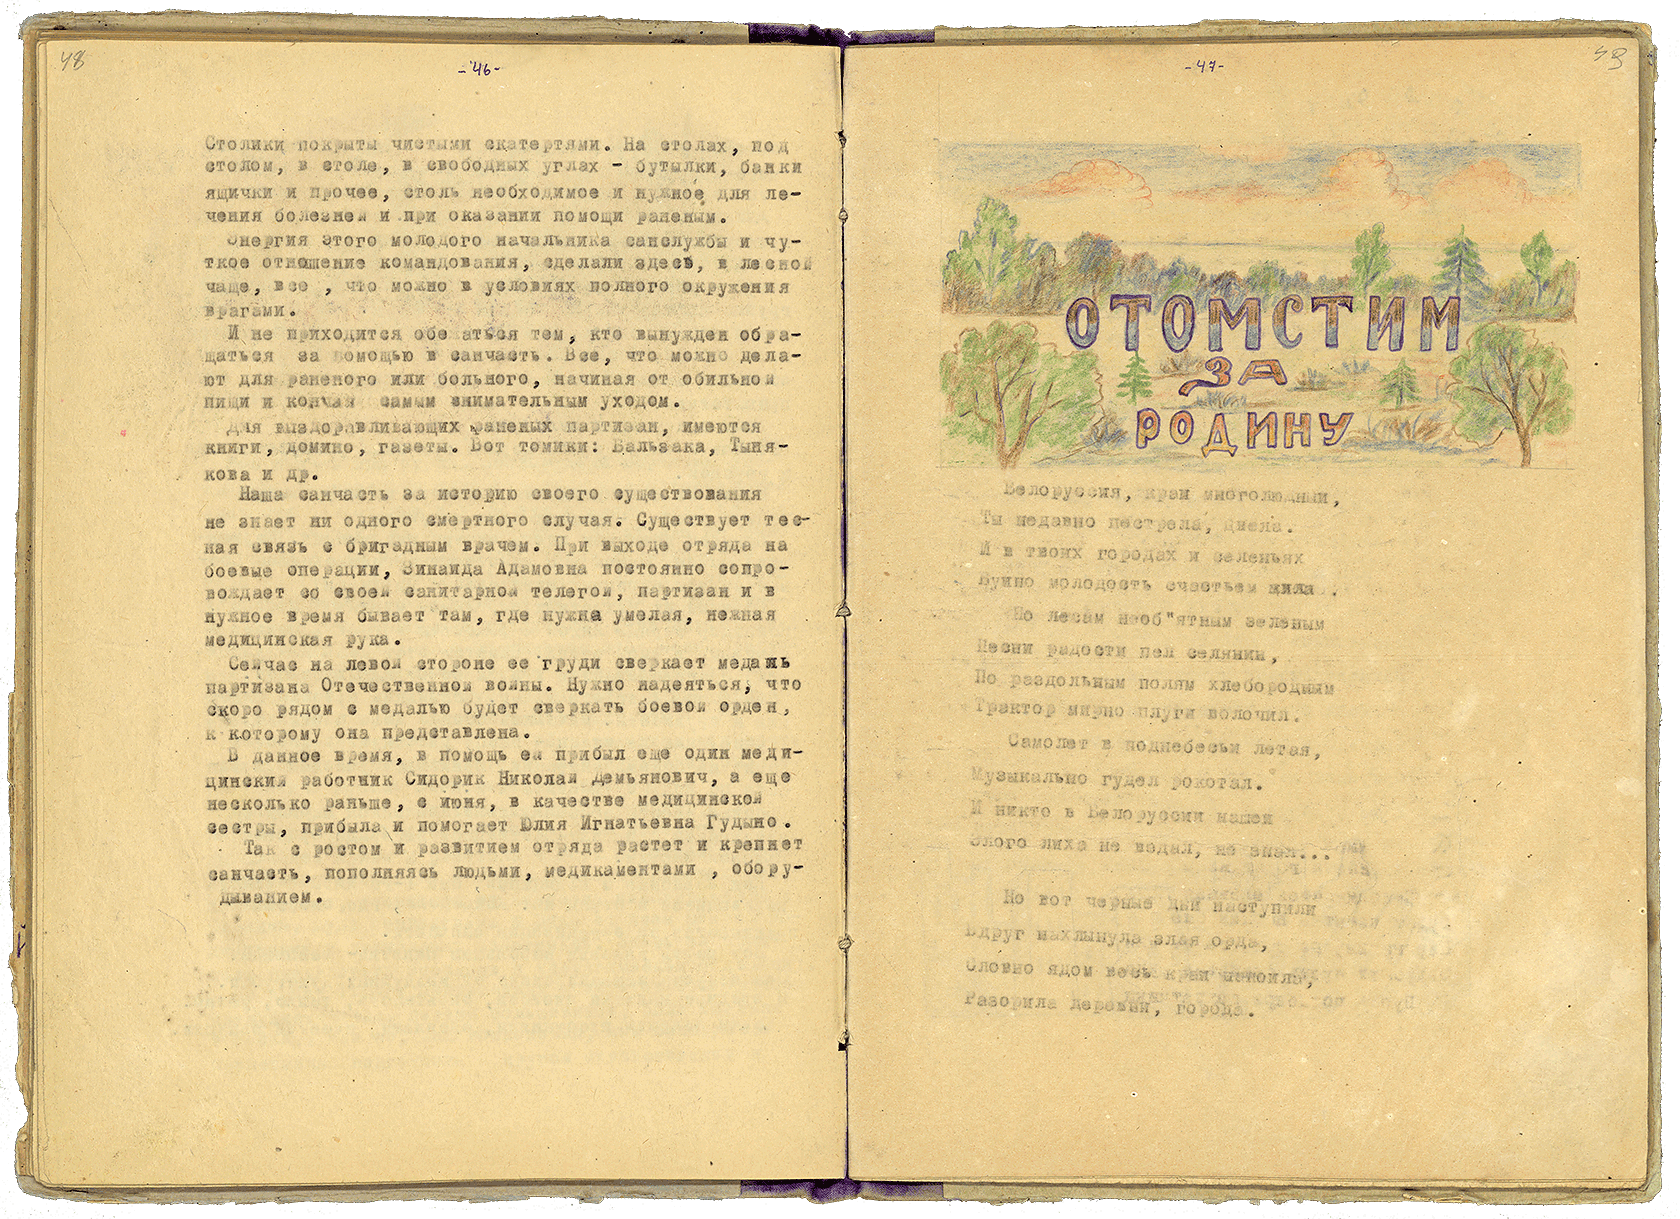 48
-46-
Столики покрыты чистыми скатертями. На столах, под
столом, в столе, в свободных углах - бутылки, банки
ящички и прочее, столь необходимое и нужное для ле-
чения болезней и при оказании помощи раненым.
Энергия этого молодого начальника санслужбы и чу-
ткое отношение командования, сделали здесь, в лесной
чаще, все , что можно в условиях полного окружения
врагами.
И не приходится обежаться тем, кто вынужден обра-
щаться за помощью в санчасть. Все, что можно дела-
ют для раненого или больного, начиная от обильной
пищи и кончая самым внимательным уходом.
Для выздоравливающих раненых партизан, имеются
книги, домино, газеты. Вот томики: Бальзака, Тыня-
кова и др.
Наша санчасть за историю своего существования
не знает ни одного смертного случая. Существует тес-
ная связь с бригадным врачем. При выходе отряда на
боевые операции, Зинаида Адамовна постоянно сопро-
вождает со своей санитарной телегой, партизан и в
нужное время бывает там, где нужна умелая, нежная
медицинская рука.
Сейчас на левой стороне ее груди сверкает медаль
партизана Отечественной войны. Нужно надеяться, что
скоро рядом с медалью будет сверкать боевой орден,
к которому она представлена.
В данное время, в помощь ей прибыл еще один меди-
цинский работник Сидорик Николай Демьянович, а еще
несколько раньше, с июня, в качестве медицинской
сестры, прибыла и помогает Юлия Игнатьевна Гудыно.
Так с ростом и развитием отряда растет и крепнет
санчасть, пополняясь людьми, медикаментами , обору-
дыванием.
-47-
ОТОМСТИМ
ЗА
РОДИНУ
Белоруссия, край многолюдный,
Ты недавно пестрела, цвела.
И в твоих городах и селеньях
Буйно молодость счастьем жила .
По лесам необ"ятным зеленым
Песни радости пел селянин,
По раздольным полям хлебородным
Трактор мирно плуги волочил.
Самолет в поднебесьи летая,
Музыкально гудел рокотал.
И никто в Белоруссии нашей
Злого лиха не ведал, не знал...
Но вот черные дни наступили
Вдруг нахлынула злая орда,
Словно ядом весь край напоила,
Разорила деревни, города.